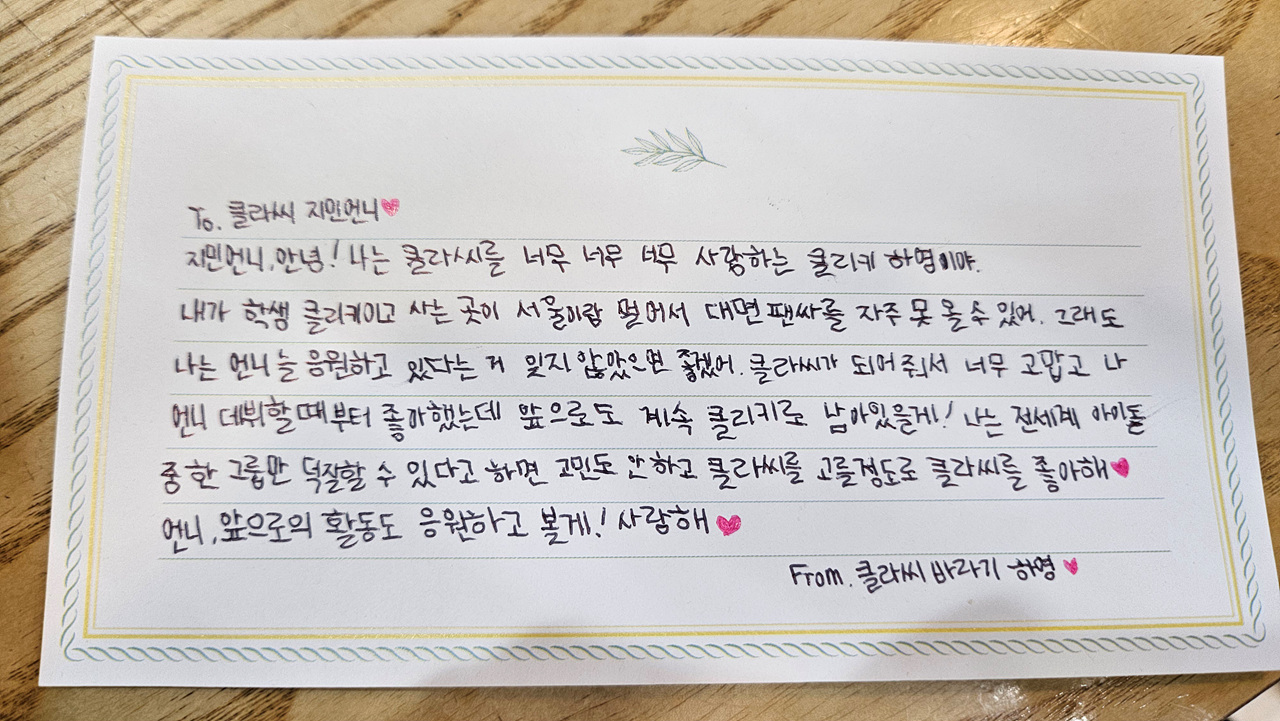 To. 클라씨 지민언니
지민언니, 안녕! 나는 클라씨를 너무 너무 너무 사랑하는 클리키 하영이야.
내가 학생 클리키이고 사는 곳이 서울이랑 멀어서 대면팬싸를 자주 못 올 수 있어. 그래도
나는 언니를 응원하고 있다는 거 잊지 않았으면 좋겠어. 클라씨가 되어줘서 너무 고맙고 나
언니 데뷔할때부터 좋아했는데 앞으로도 계속 클리키로 남아있을게! 나는 전세계 아이돌
중 한 그룹만 덕질할 수 있다고 하면 고민도 안하고 클라씨를 고를정도로 클라씨를 좋아해
언니, 앞으로의 활동도 응원하고 볼게! 사랑해
From. 클라씨바라기 하영